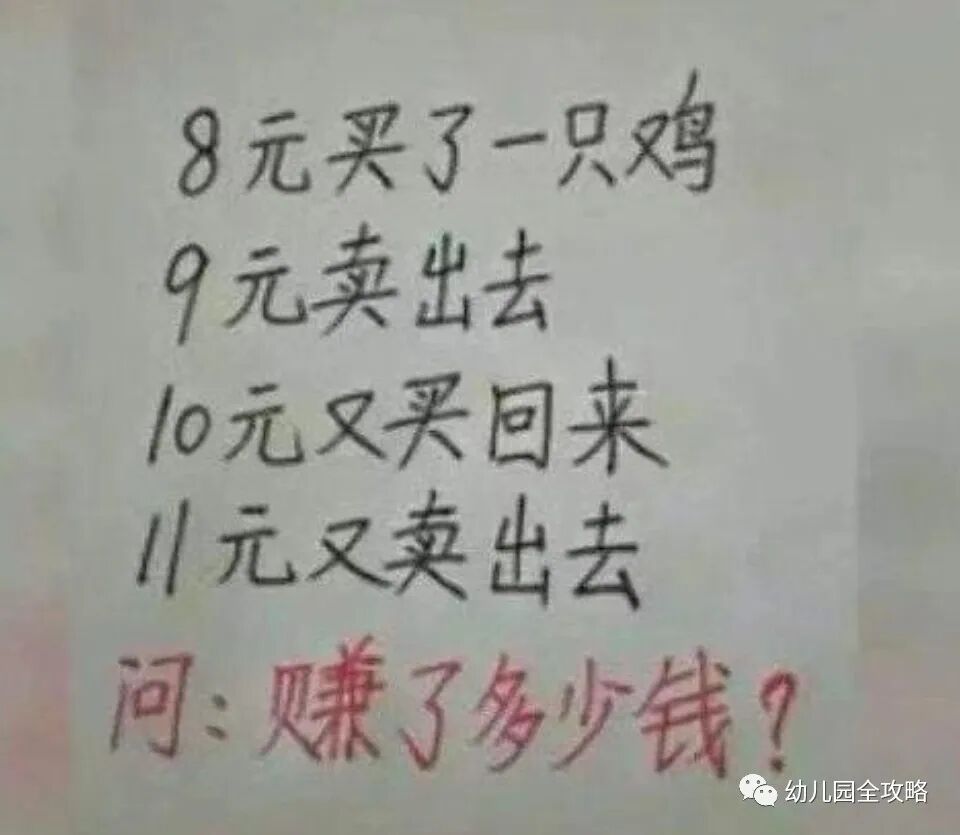 8元买了一只鸡
9元卖出去
10元又买回来
11元又卖出去
问:赚了多少钱?
幼儿园全攻略